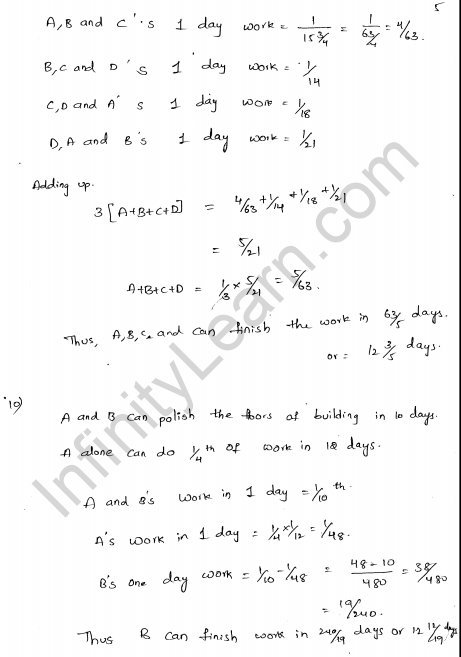 5
A, B and C's 1 day work = 1/15 3/4 = 1/63/4 = 4/63.
B, C and D's 1 day work = 1/14
C, D and A's 1 day work = 1/18
D, A and B's 1 day work = 1/21
Adding up.
3[A+B+C+D] = 4/63 + 1/14 + 1/18 + 1/21
= 5/21
A+B+C+D = 1/3 × 5/21 = 5/63.
Thus, A, B, C, and can finish the work in 63/5 days.
or = 12 3/5 days.
10)
A and B can polish the floors of building in 10 days.
A alone can do 1/4 th of work in 12 days.
A and B's work in 1 day = 1/10 th.
A's work in 1 day = 1/4 × 1/12 = 1/48.
B's one day work = 1/10 - 1/48 = 48-10/480 = 38/480
= 19/240.
Thus B can finish work in 240/19 days or 12 12/19 days
InfinityLearn.com